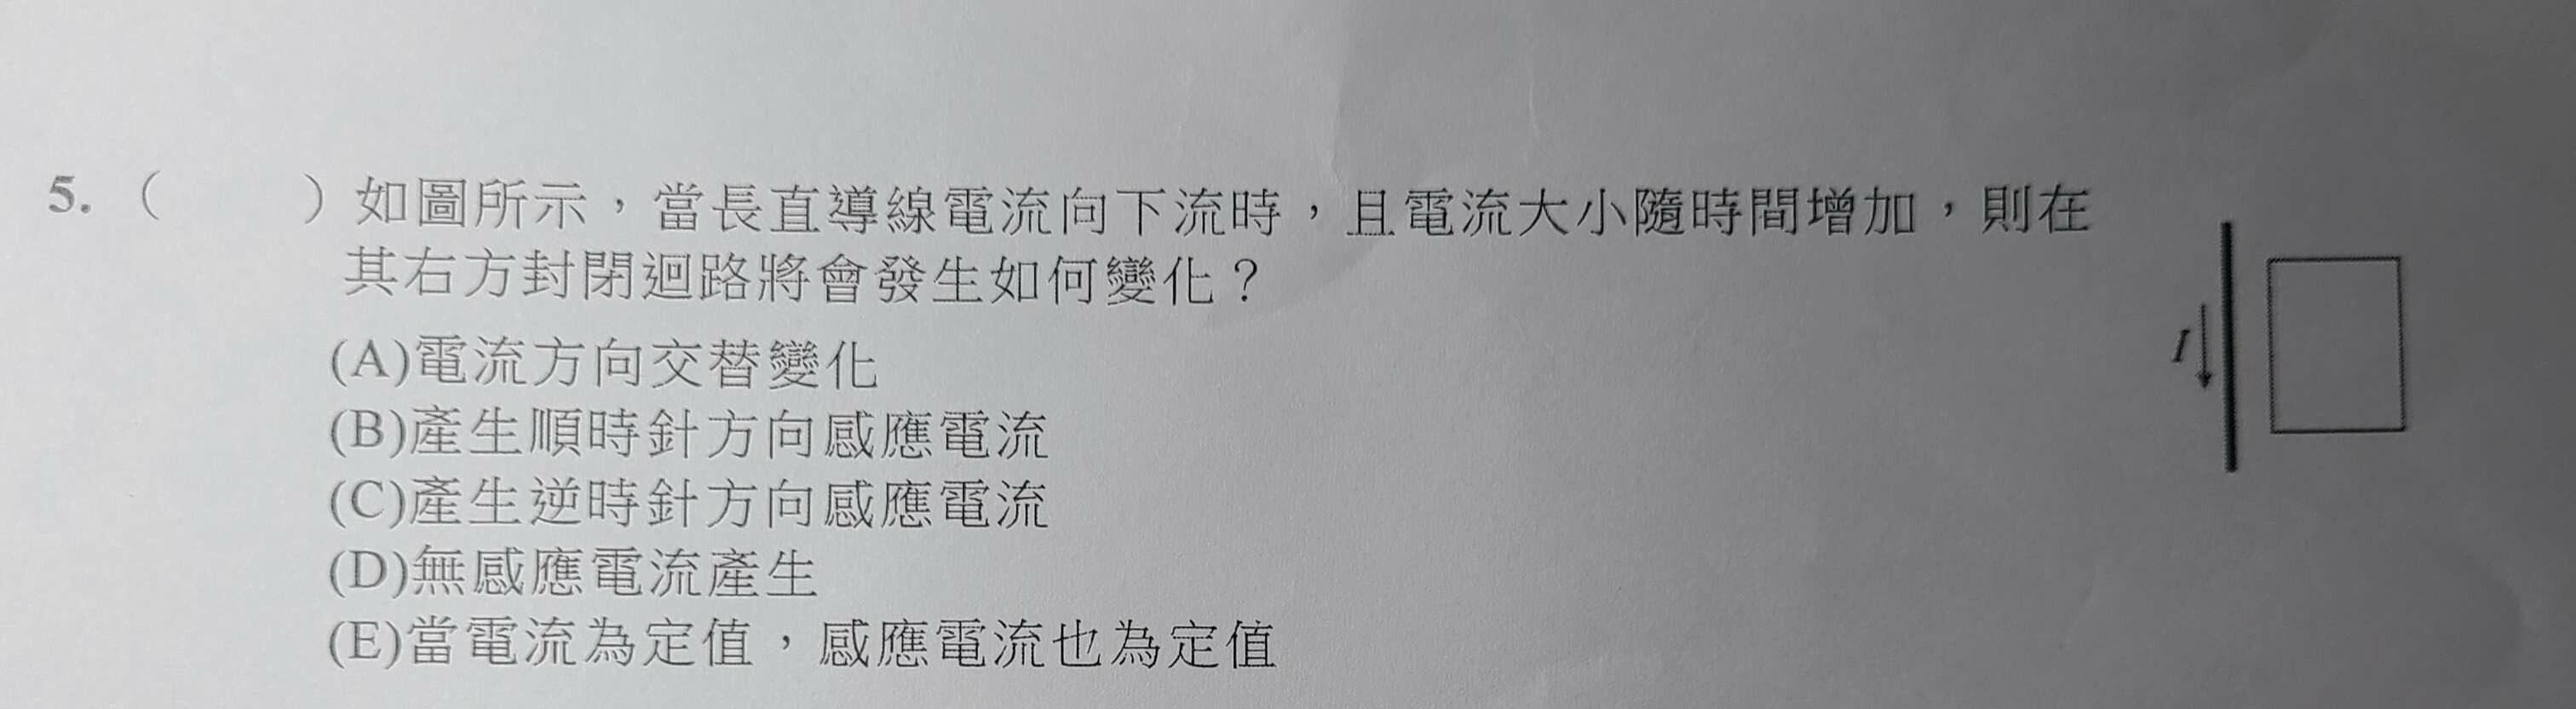 5. (　　) 如圖所示，當長直導線電流向下流時，且電流大小隨時間增加，則在
其右方封閉迴路將會發生如何變化？
(A)電流方向交替變化
(B)產生順時針方向感應電流
(C)產生逆時針方向感應電流
(D)無感應電流產生
(E)當電流為定值，感應電流也為定值
I